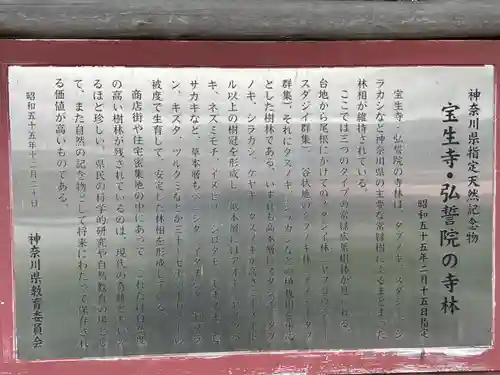 神奈川県指定天然記念物
宝生寺・弘誓院の寺林
昭和五十五年二月十五日指定
宝生寺、弘誓院の寺林は、タブノキ、スダジイ、シ
ラカシなど神奈川県の主要な常緑樹によるまとまった
林相が維持されている。
ここでは三つのタイプの常緑広葉樹林が見られる。
台地から尾根にかけての
スダジイ群集、谷状地の
群集、それにタブノキ、シラカシなどの
とした樹林である。いずれも高木層にスダジイ、タブ
ノキ、シラカシ、ケヤキ、
ル以上の樹冠を形成し、低木層にはアオキ、
キ、ネズミモチ、イヌビワ、シロダモ、
サカキなど、草本層もベニシダ、
ン、キズタ、
被度で生育して、安定した林相を形成している。
商店街や住宅密集地の中にあって、これだけ自然度
の高い樹林が残されているのは、現代の奇跡といえ
るほど珍しい。県民の科学的研究や自然教育の場とし
て、また自然の記念物として将来にわたって保存され
る価値が高いものである。
昭和五十五年十二月二十日
神奈川県教育委員会